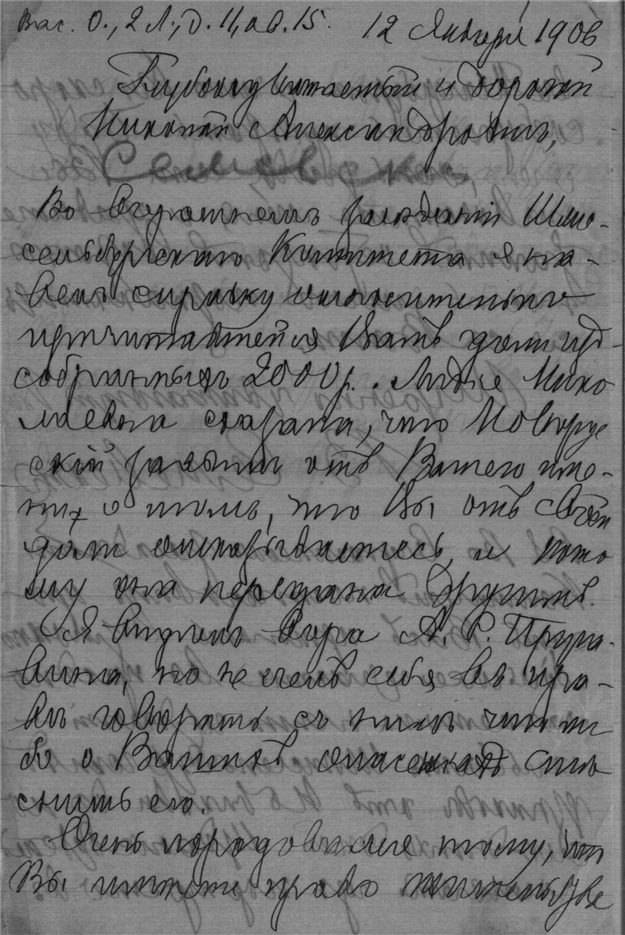 Вас. О., 2 Л., д. 11, кв. 15. 12 Января 1906
Глубокоуважаемый и дорогой
Николай Александровичъ,
Во вчерашнемъ заседаніи Шлис-
сельбургскаго Комитета я на-
велъ справку относительно
причитающейся Вамъ доли из
собранныхъ 2000 р. Лидія Нико
лаевна сказала, что Новорус
скій заявилъ отъ Вашего име-
ни о томъ, что Вы отъ своей
доли отказываетесь, и пото
му она передана другимъ.
Я виделъ вчера А. С. Пруга-
вина, но не счелъ себя въ пра-
ве говорить съ нимъ что ни
б о Вашихъ
его.
Очень порадовался тому, что
Вы имеете право жительства